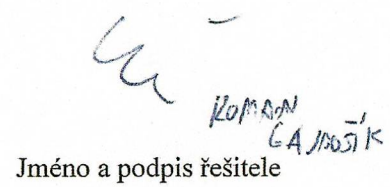 ROMAN
GAJDOŠÍK
Jméno a podpis řešitele